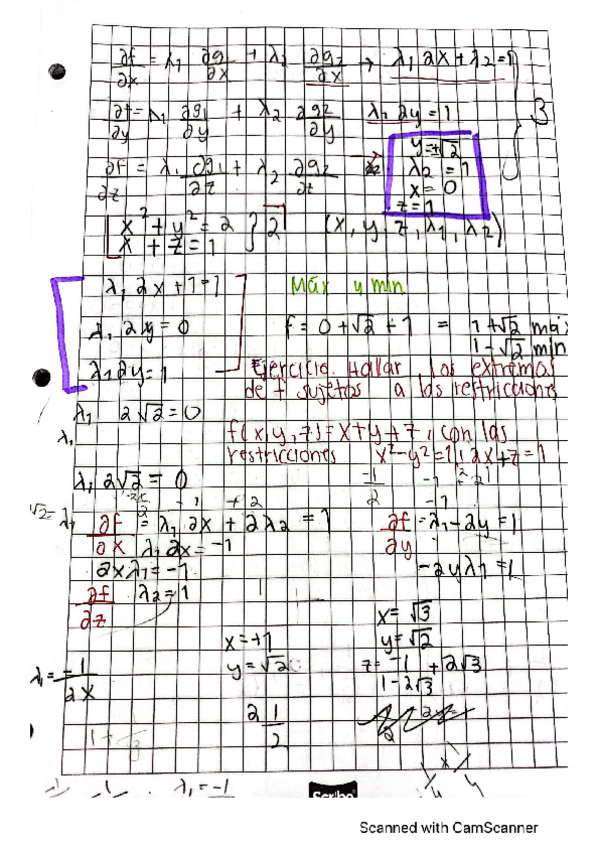 ∂f/∂x = λ₁ ∂g₁/∂x + λ₂ ∂g₂/∂x → λ₁ 2x + λ₂ = 1
∂f/∂y = λ₁ ∂g₁/∂y + λ₂ ∂g₂/∂y λ₁ 2y = 1
3
∂f/∂z = λ₁ ∂g₁/∂z + λ₂ ∂g₂/∂z
y = ±√2
λ₂ = 1
x = 0
z = 1
x² + y² = 2
x + z = 1 } 2 (x, y, z, λ₁, λ₂)
λ₁ 2x + 1 = 1 Máx y mín
λ₁ 2x = 0 f = 0 + √2 + 1 = 1 + √2 máx
1 - √2 mín
λ₁ 2y = 1 Ejercicio. Hallar los extremos
de f sujetos a las restricciones
λ₁ 2√2 = 0
λ₁
f(x, y, z) = x + y + z, con las
restricciones x² - y² = 1, 2x + z = 1
λ₁ 2√2 = 0
∂f/∂x = λ₁ 2x + 2λ₂ = 1 ∂f/∂y = λ₁ - 2y = 1
λ₁ 2x = -1
2xλ₁ = -1 -2yλ₁ = 1
∂f/∂z λ₂ = 1
x = √3
x = +1 y = √2
λ₁ = -1/2x y = √2 z = -1 + 2√3
1 - 2√3
2 1/2
λ₁ = -1
Scribe
Scanned with CamScanner